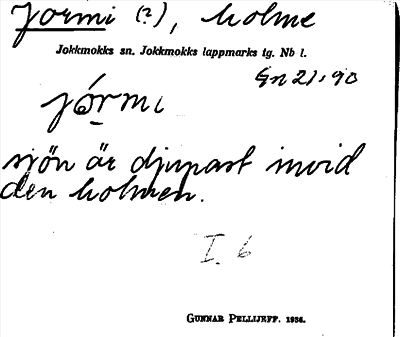 Jormi (?), holme
Jokkmokks sn. Jokkmokks lappmarks tg. Nb l.
Gn 21.90
jórmi
sjön är djupast invid
den holmen.
I. 6
GUNNAR PELLIJEFF. 1936.